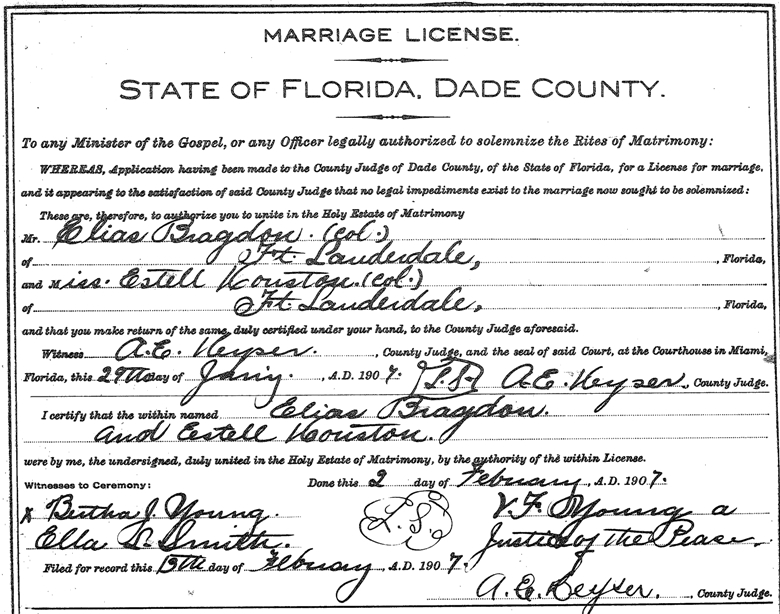 MARRIAGE LICENSE.
STATE OF FLORIDA, DADE COUNTY.
To any Minister of the Gospel, or any Officer legally authorized to solemnize the Rites of Matrimony:
WHEREAS, Application having been made to the County Judge of Dade County, of the State of Florida, for a License for marriage,
and it appearing to the satisfaction of said County Judge that no legal impediments exist to the marriage now sought to be solemnized:
These are, therefore, to authorize you to unite in the Holy Estate of Matrimony
Mr. Elias Bragdon. (Col.)
of Ft. Lauderdale, , Florida,
and Miss. Estell Houston. (Col.)
of Ft. Lauderdale, , Florida,
and that you make return of the same, duly certified under your hand, to the County Judge aforesaid.
Witness A.E. Heyser. , County Judge, and the seal of said Court, at the Courthouse in Miami,
Florida, this 29th day of , A.D. 1907. (L.S.) A.E. Heyser., County Judge.
I certify that the within named Elias Bragdon.
and Estell Houston.
were by me, the undersigned, duly united in the Holy Estate of Matrimony, by the authority of the within License.
Witnesses to Ceremony: Done this 2 day of February , A.D. 1907.
x Bertha J. Young. V.F. Young a
Ella Smith. (L.S.) Justice of the Pease.
Filed for record this 13th day of February , A.D. 1907.
A.E. Heyser. , County Judge.